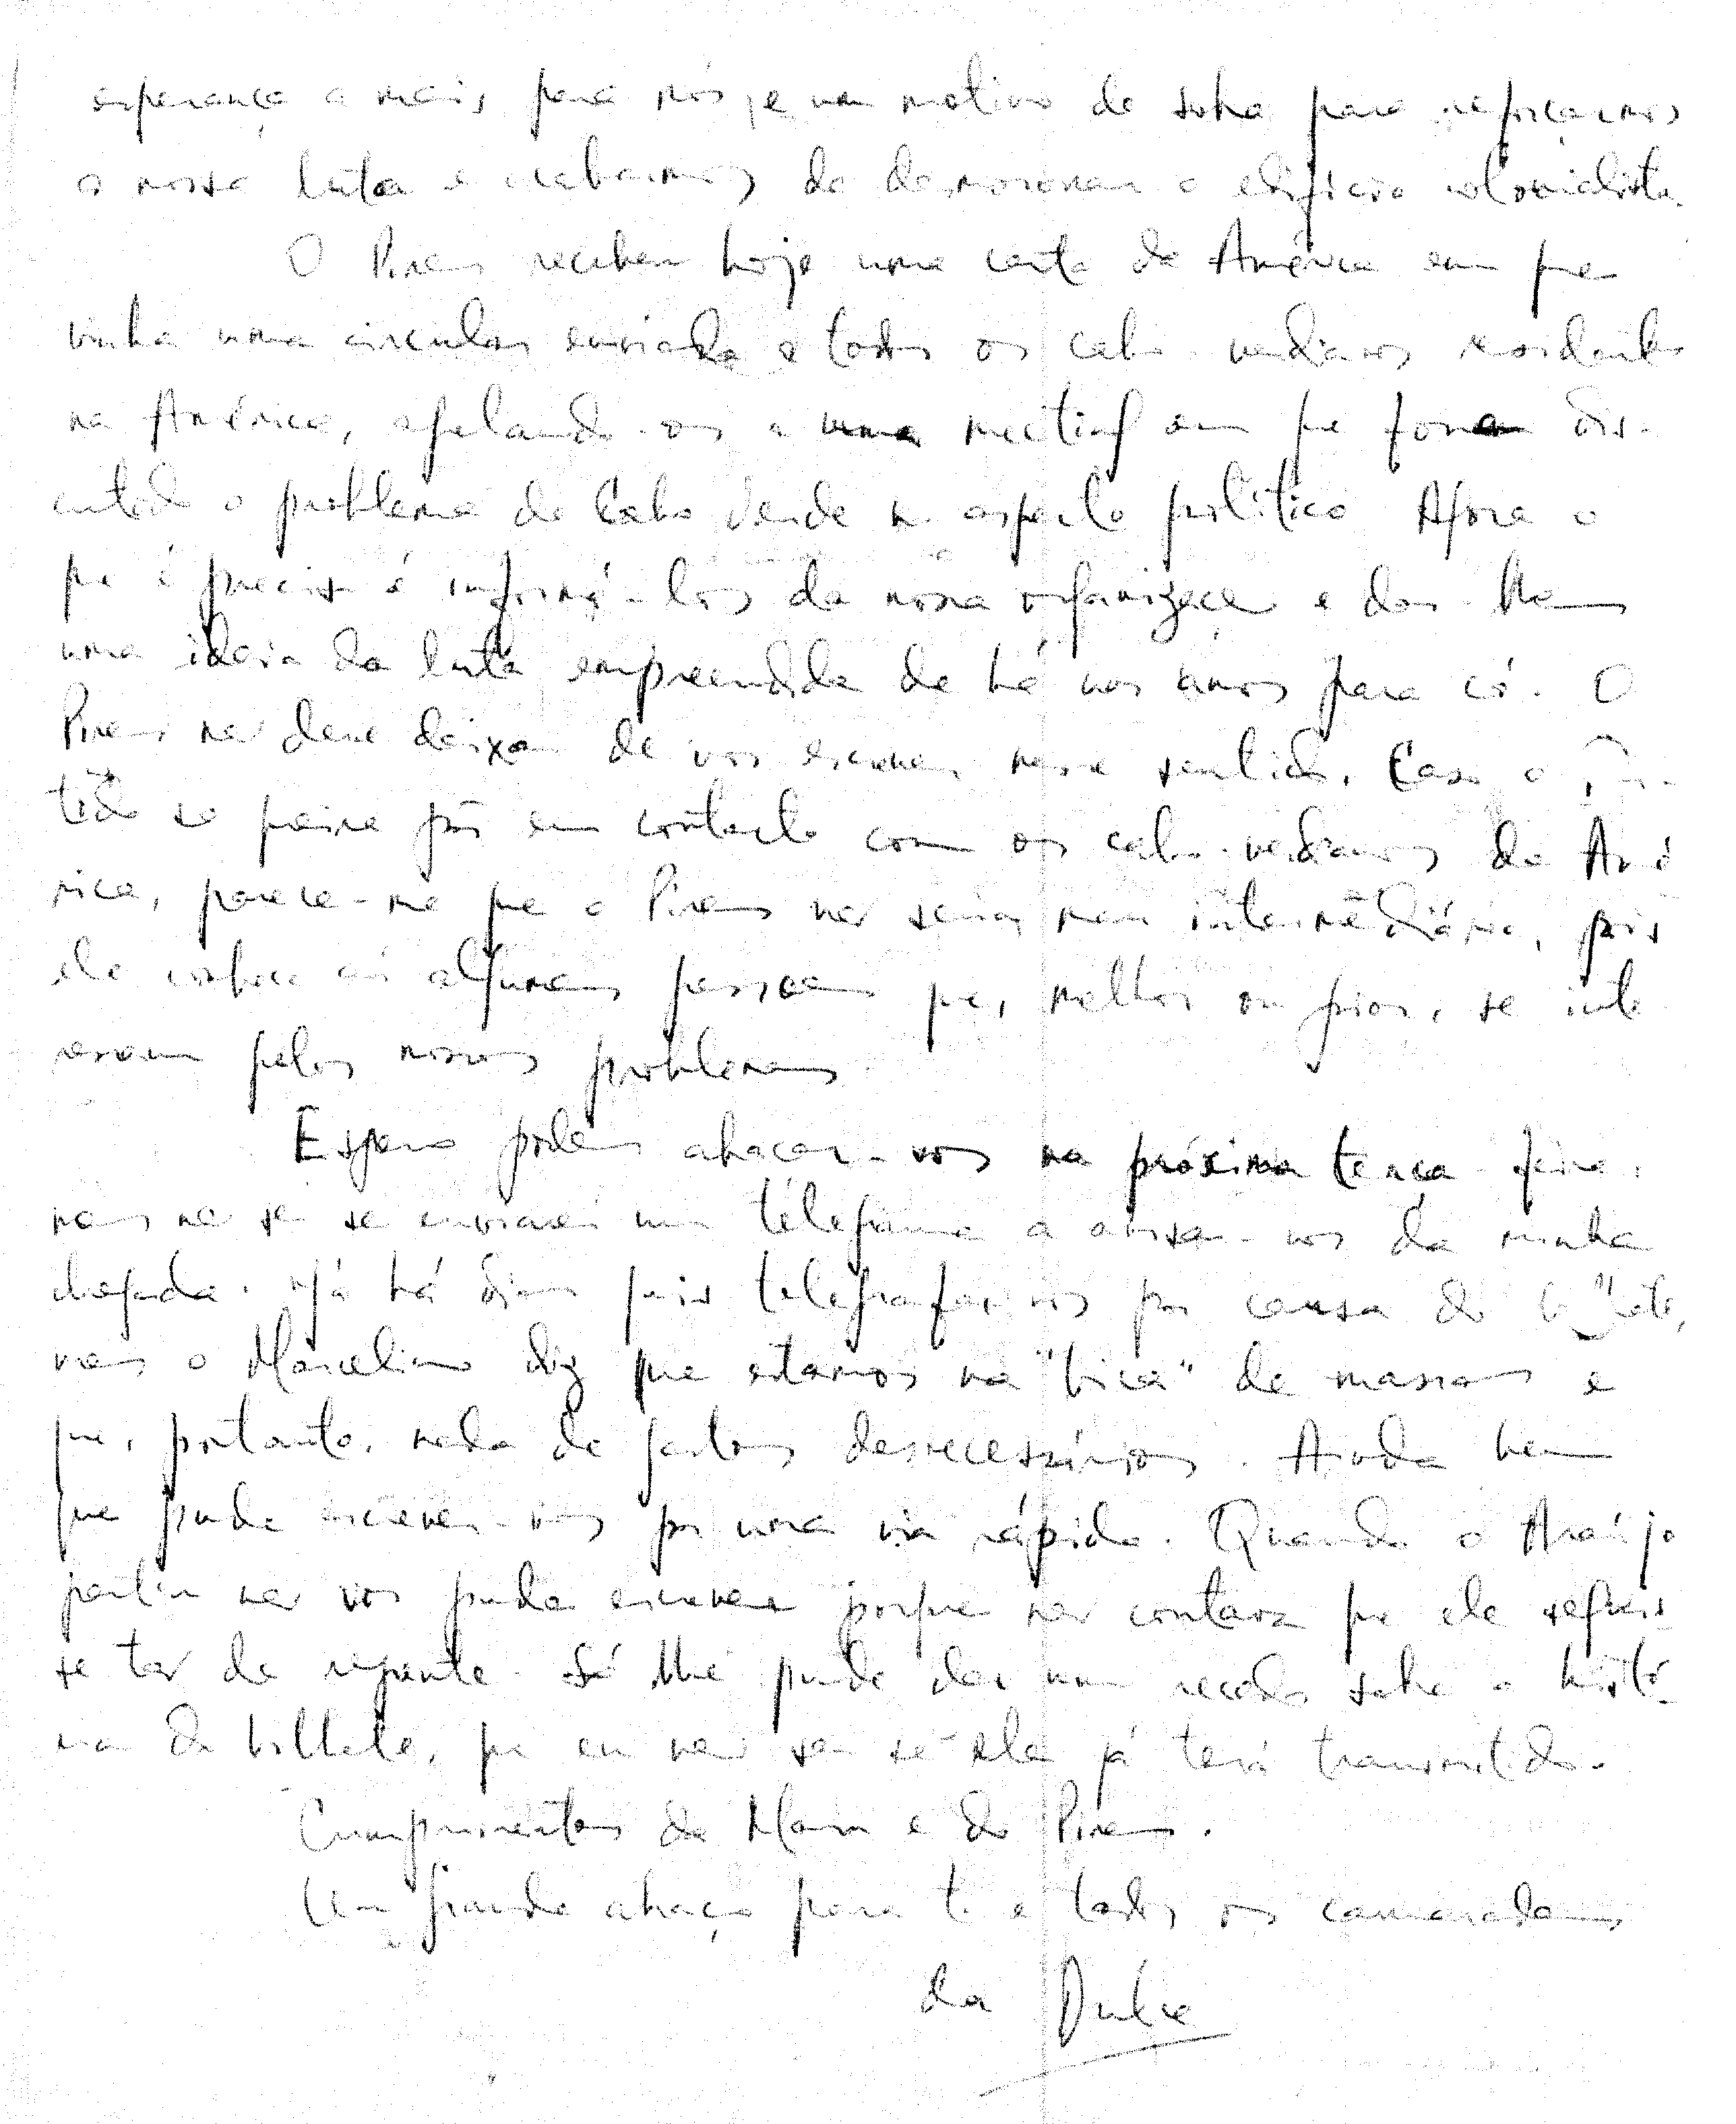 esperança a mais para nós, e um motivo de sobra para reforçarmos
a nossa luta e acabarmos de desmoronar o edifício colonialista.
O Pires recebeu hoje uma carta da América em que
vinha uma circular enviada a todos os cabo-verdianos residentes
na América, apelando-os a uma meeting em que foram dis-
cutido o problema de Cabo Verde no aspecto político. Agora o
que é preciso é informá-los da nossa organização e dar-lhes
uma ideia da luta empreendida de há uns anos para cá. O
Pires não deve deixar de vos escrever nesse sentido. Caso o Par-
tido se queira pôr em contacto com os cabo-verdianos da Amé
rica, parece-me que o Pires não seria mau intermediário, pois
ele conhece aí algumas pessoas que, melhor ou pior, se inte
ressam pelos nossos problemas.
Espero poder abraçar-vos na próxima terça-feira,
mas não sei se enviarei um telegrama a avisar-vos da minha
chegada. Já há dias quis telegrafar-vos por causa do bilhete,
mas o Marcelino diz que estamos na "bica" de massas e
que, portanto, nada de gastos desnecessários. Ainda bem
que pude escrever-vos por uma via rápida. Quando o Araújo
partiu não vos pude escrever porque não contava que ele seguis
se tão de repente. Só lhe pude dar um recado sobre a histó-
ria do bilhete, que eu não sei se ele já terá transmitido.
Cumprimentos da Maria e do Pires.
Um grande abraço para ti e todos os camaradas
da Dulce